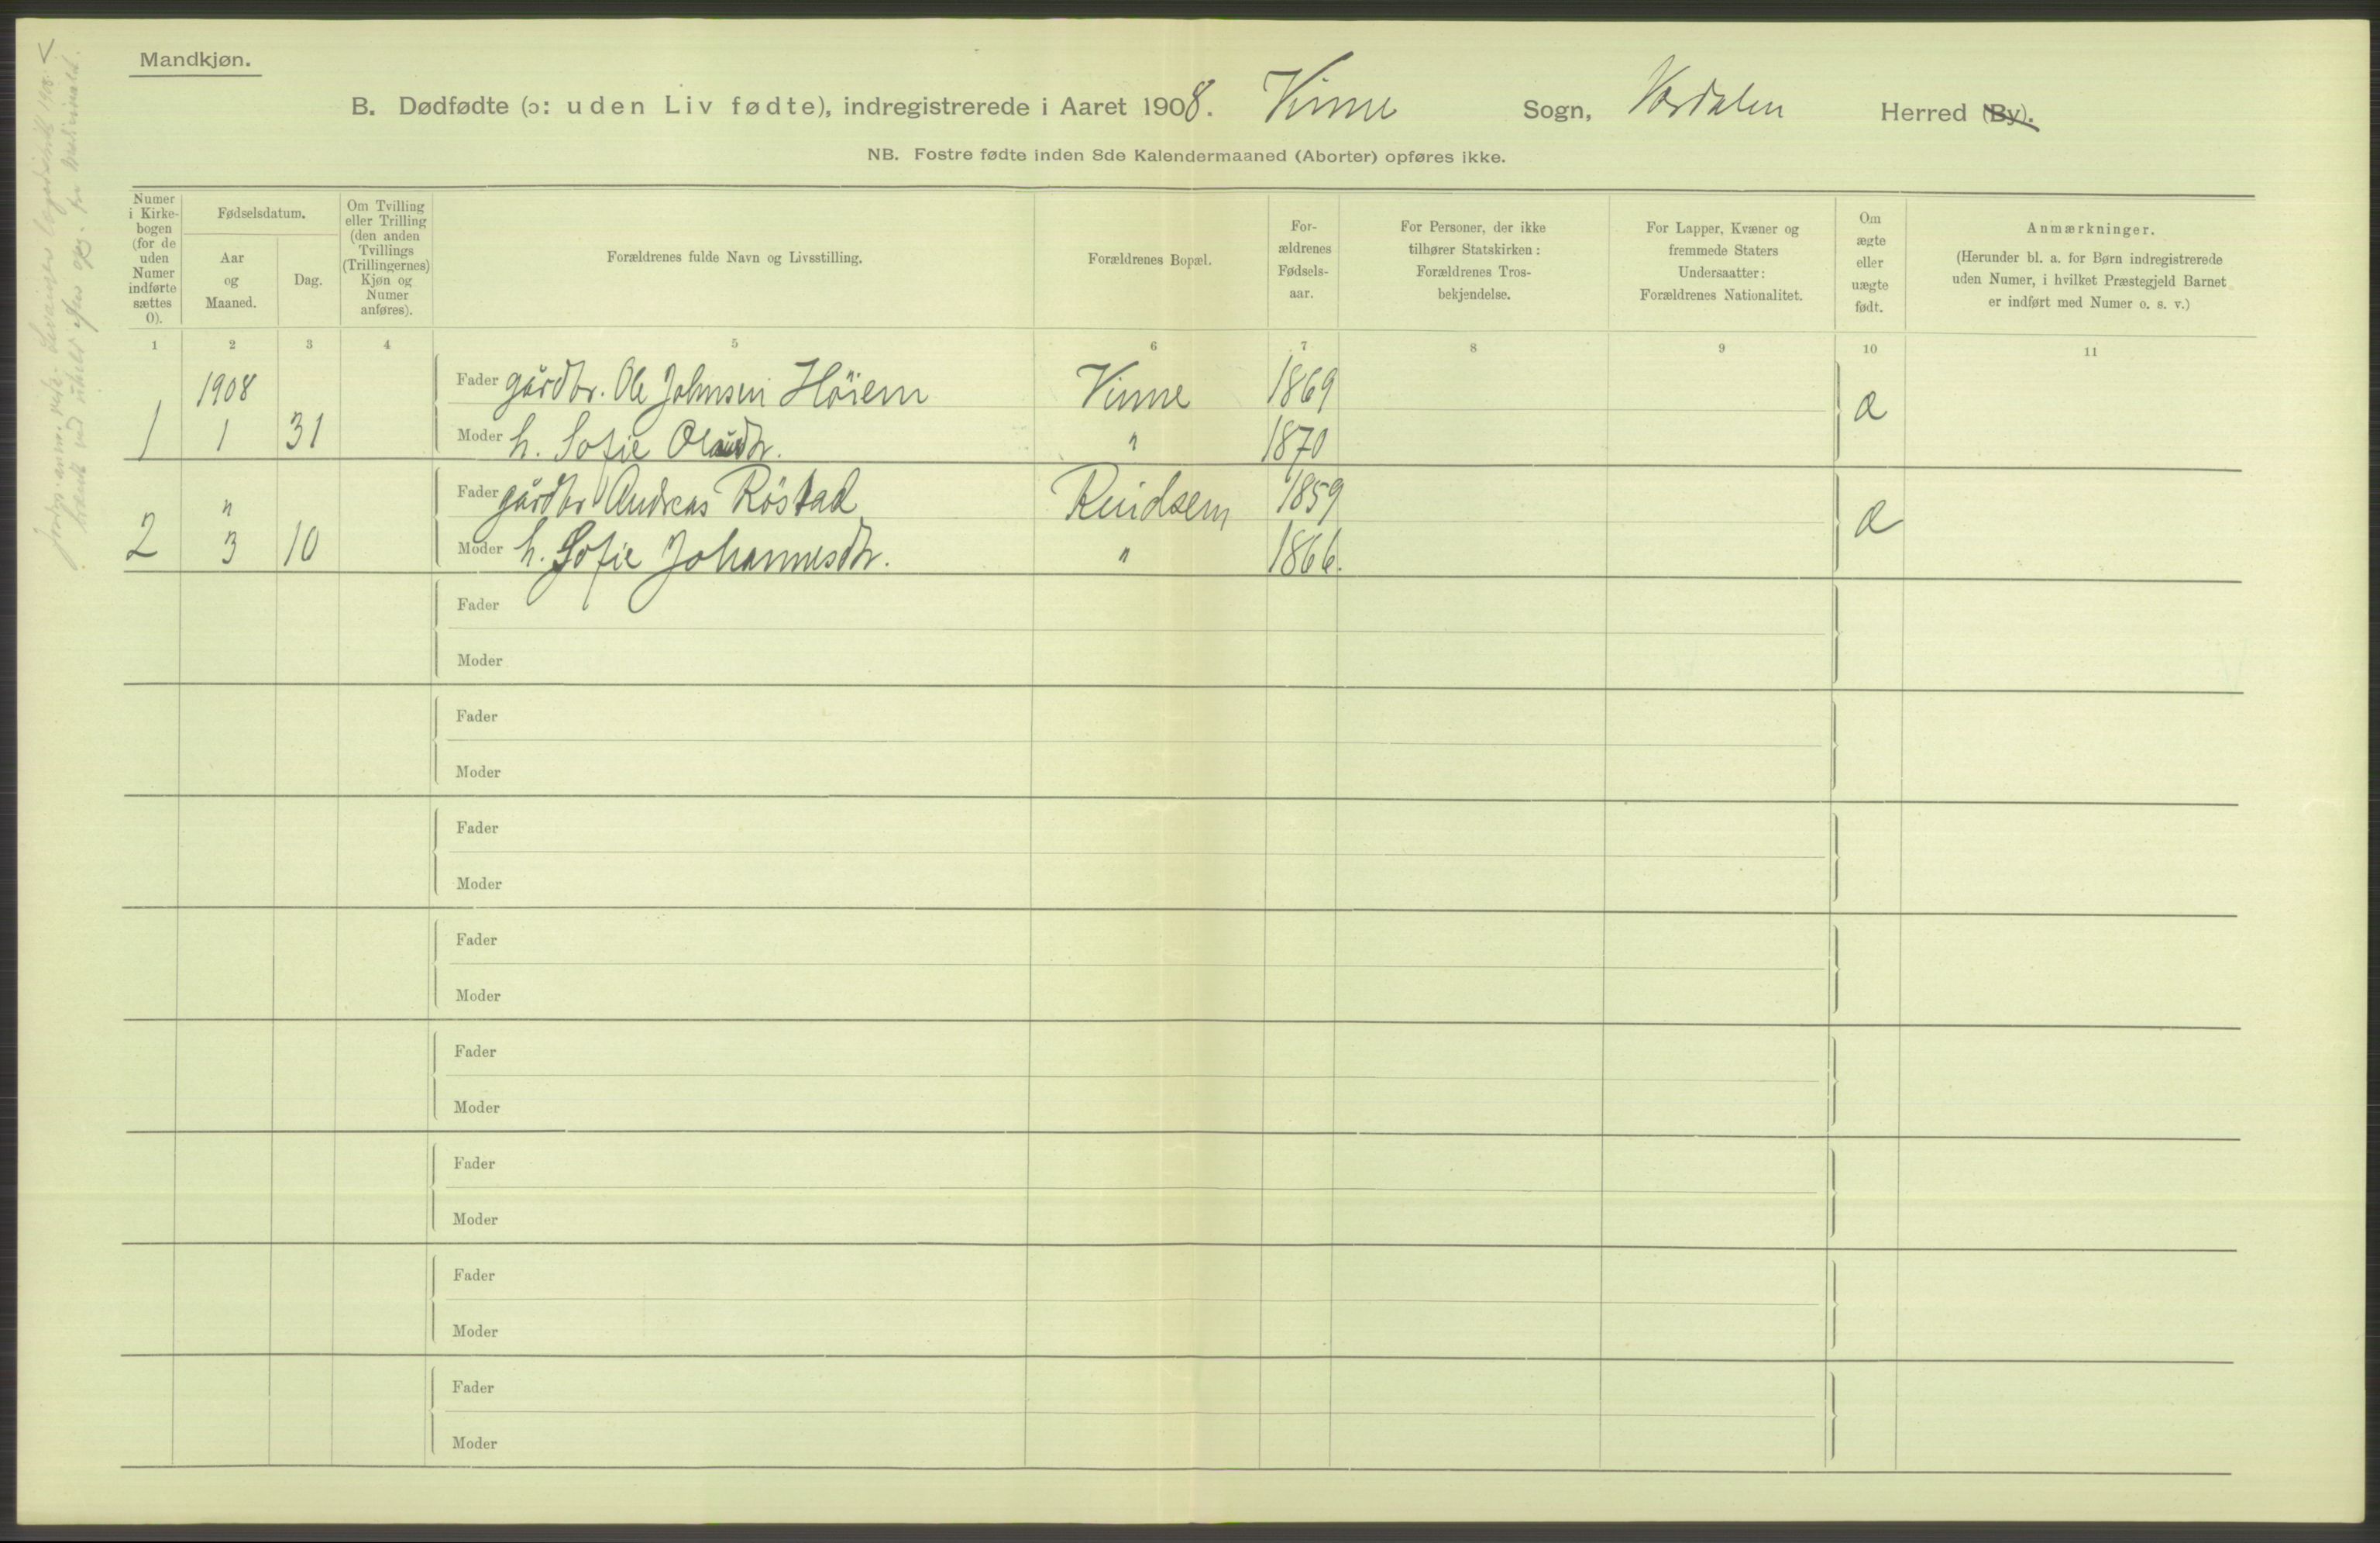 Mandkjøn.
B. Dødfødte (ɔ: uden Liv fødte), indregistrerede i Aaret 1908. Vinne Sogn, Værdalen Herred (By).
NB. Fostre fødte inden 8de Kalendermaaned (Aborter) opføres ikke.
Numer i Kirkebogen (for de uden Numer indførte sættes 0).
Fødselsdatum.
Aar og Maaned.
Dag.
Om Tvilling eller Trilling (den anden Tvillings (Trillingernes) Kjøn og Numer anføres).
Forældrenes fulde Navn og Livsstilling.
Forældrenes Bopæl.
For-
ældrenes
Fødsels-
aar.
For Personer, der ikke
tilhører Statskirken:
Forældrenes Tros-
bekjendelse.
For Lapper, Kvæner og
fremmede Staters
Undersaatter:
Forældrenes Nationalitet.
Om
ægte
eller
uægte
født.
Anmærkninger.
(Herunder bl. a. for Børn indregistrerede
uden Numer, i hvilket Præstegjeld Barnet
er indført med Numer o. s. v.)
1 2 3 4 5 6 7 8 9 10 11
1908 Fader gårdbr. Ole Johnsen Höiem Vinne 1869 æ
1 1 31 Moder h. Sofie " 1870
" Fader gårdbr Andreas Röstad 1859 æ
2 3 10 Moder h. Sofie Johannesdtr. " 1866.
Fader
Moder
Fader
Moder
Fader
Moder
Fader
Moder
Fader
Moder
Fader
Moder
Fader
Moder
Fader
Moder